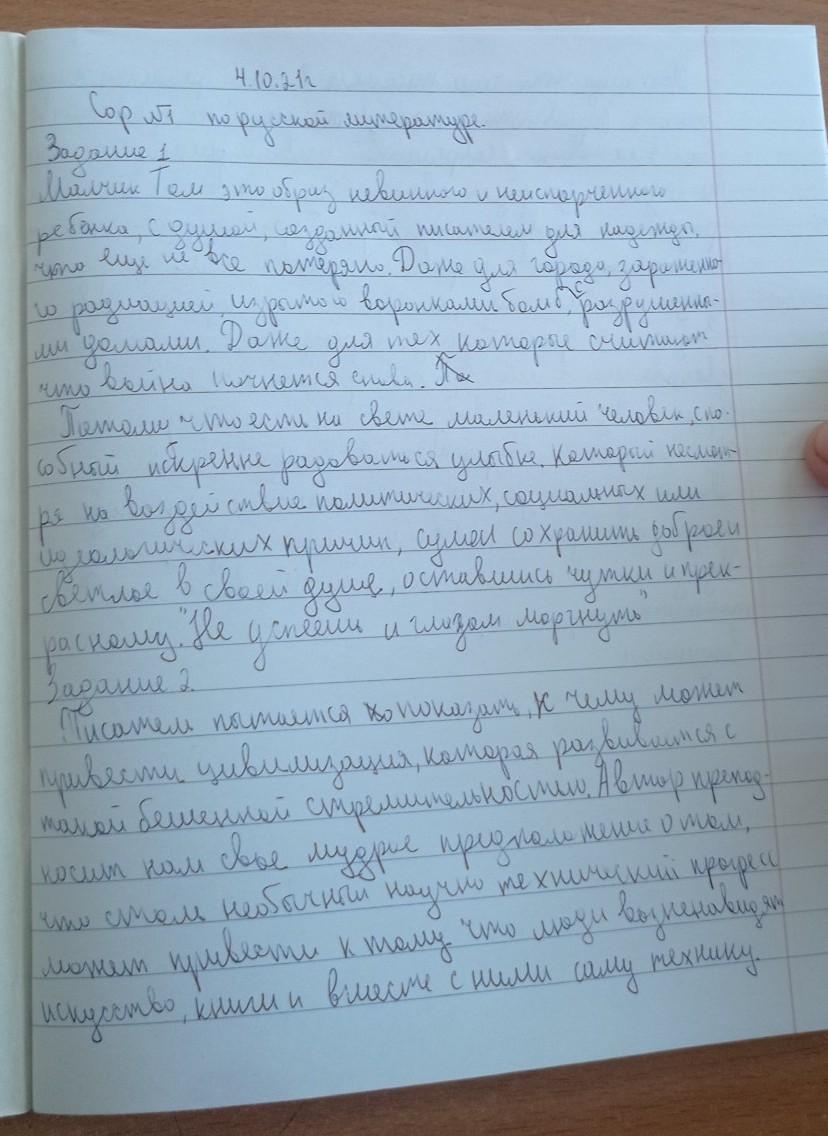 4.10.21г
Сор №1 по русской литературе.
Задание 1
Малчик Том это образ невинного и неиспорченного
ребёнка, с душой, созданный писателем для надежды,
что еще не все потеряно. Даже для города, зараженно-
го радиацией, изрытого воронками бомб, с разрушенны-
ми домами. Даже для тех которые считают
что война начнется снова.
Потому что есть на свете маленький человек, спо-
собный искренне радоваться улыбке. Который несмот-
ря на воздействие политических, социальных или
идеологических причин, сумел сохранить доброе и
светлое в своей душе, оставшись чутки и прек-
расному. "Не успеешь и глазом моргнуть"
Задание 2.
Писатель пытается показать, к чему может
привести цивилизация, которая развивается с
такой бешенной стремительностью. Автор препод-
носит нам свое мудрое предположение о том,
что столь необычный научно технический прогресс
может привести к тому что люди возненавидят
искусство, книги и вместе с ними саму технику.